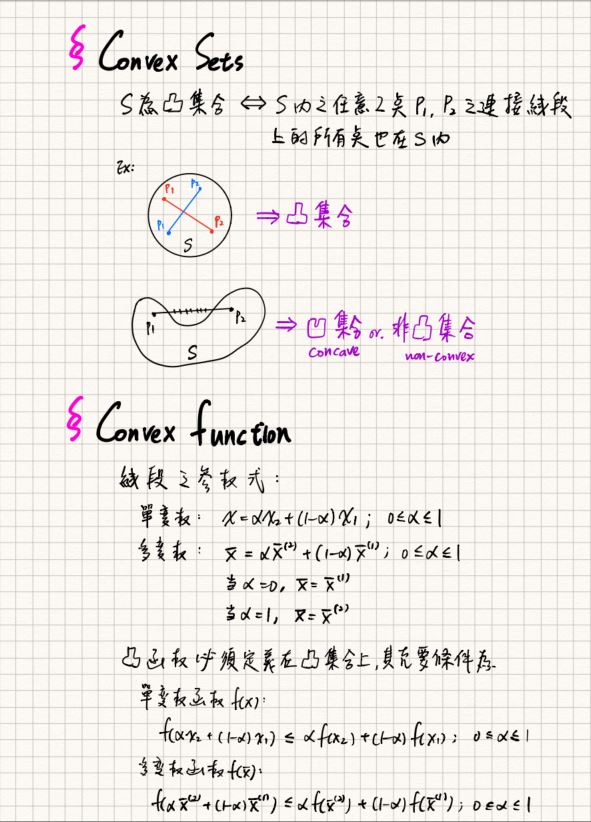 § Convex Sets
S為凸集合 ⇔ S內之任意2點P₁, P₂之連接線段
上的所有點也在S內
Ex:
P₁ P₂
P₁ P₂
S
⇒ 凸集合
P₁ P₂
S
⇒ 凹集合 or 非凸集合
concave non-convex
§ Convex function
線段之參數式:
單變數: x = αx₂ + (1-α) x₁ ; 0≤α≤1
多變數: x̄ = αx̄⁽²⁾ + (1-α) x̄⁽¹⁾ ; 0≤α≤1
当 α=0, x̄ = x̄⁽¹⁾
当 α=1, x̄ = x̄⁽²⁾
凸函数必須定義在凸集合上,其充要條件為
單變数函数 f(x):
f(αx₂ + (1-α) x₁) ≤ αf(x₂) + (1-α) f(x₁) ; 0≤α≤1
多變数函数 f(x̄):
f(αx̄⁽²⁾ + (1-α) x̄⁽¹⁾) ≤ αf(x̄⁽²⁾) + (1-α) f(x̄⁽¹⁾) ; 0≤α≤1